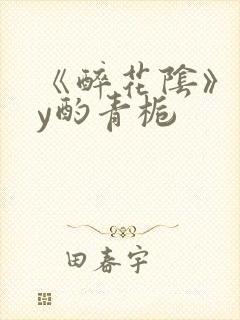 《醉花陰》
y酌青栀
田春宇